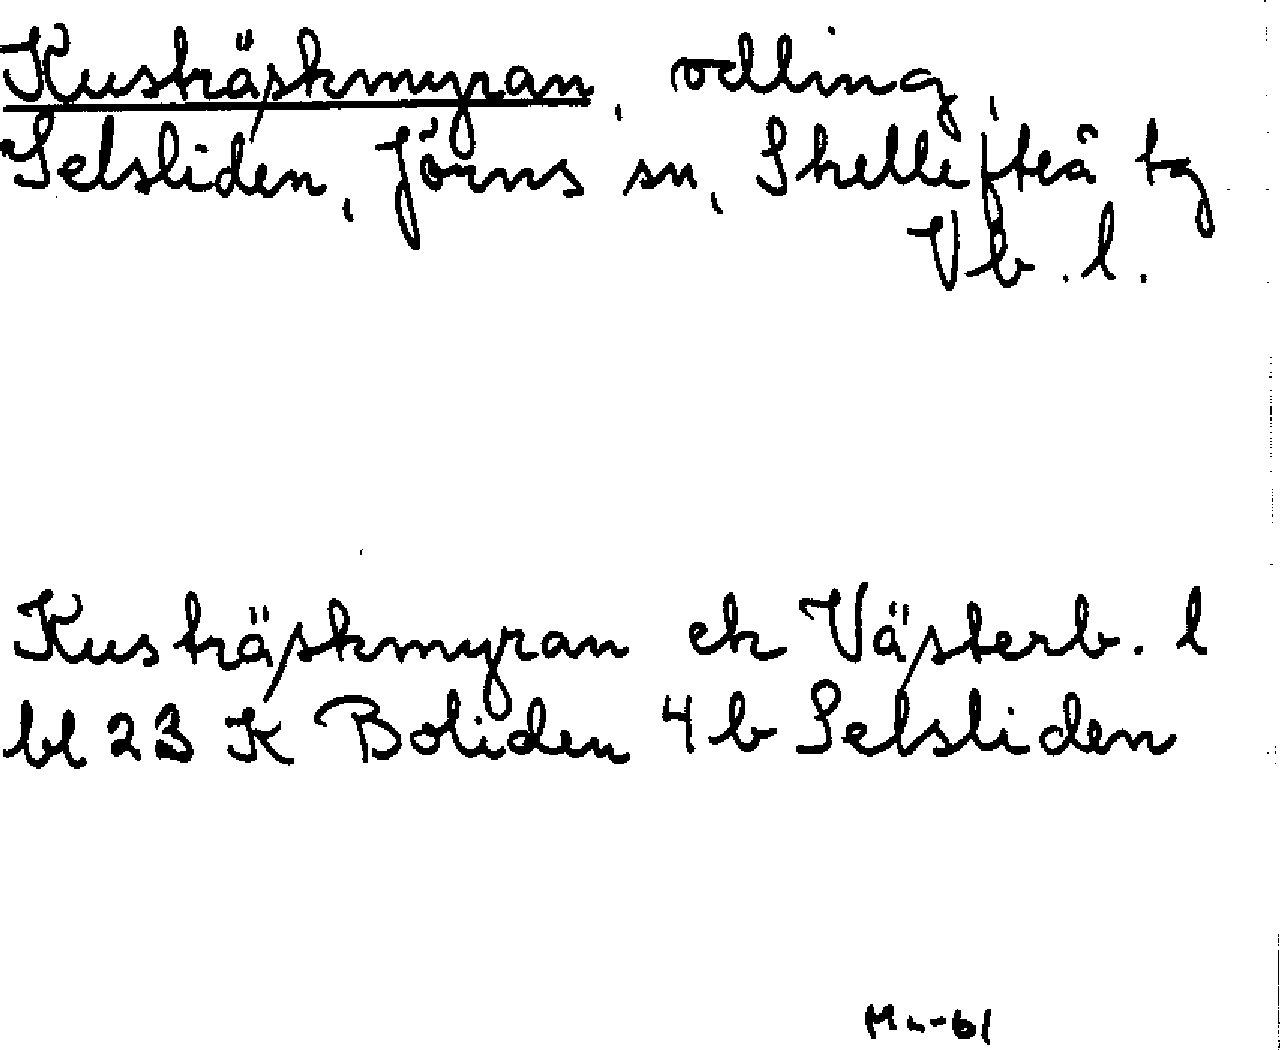 Kusträskmyran, odling,
Selsliden, Jörns sn, Skellefteå tg
Vb. l.
Kusträskmyran ek Västerb. l
bl 23 K Boliden 4b Selsliden